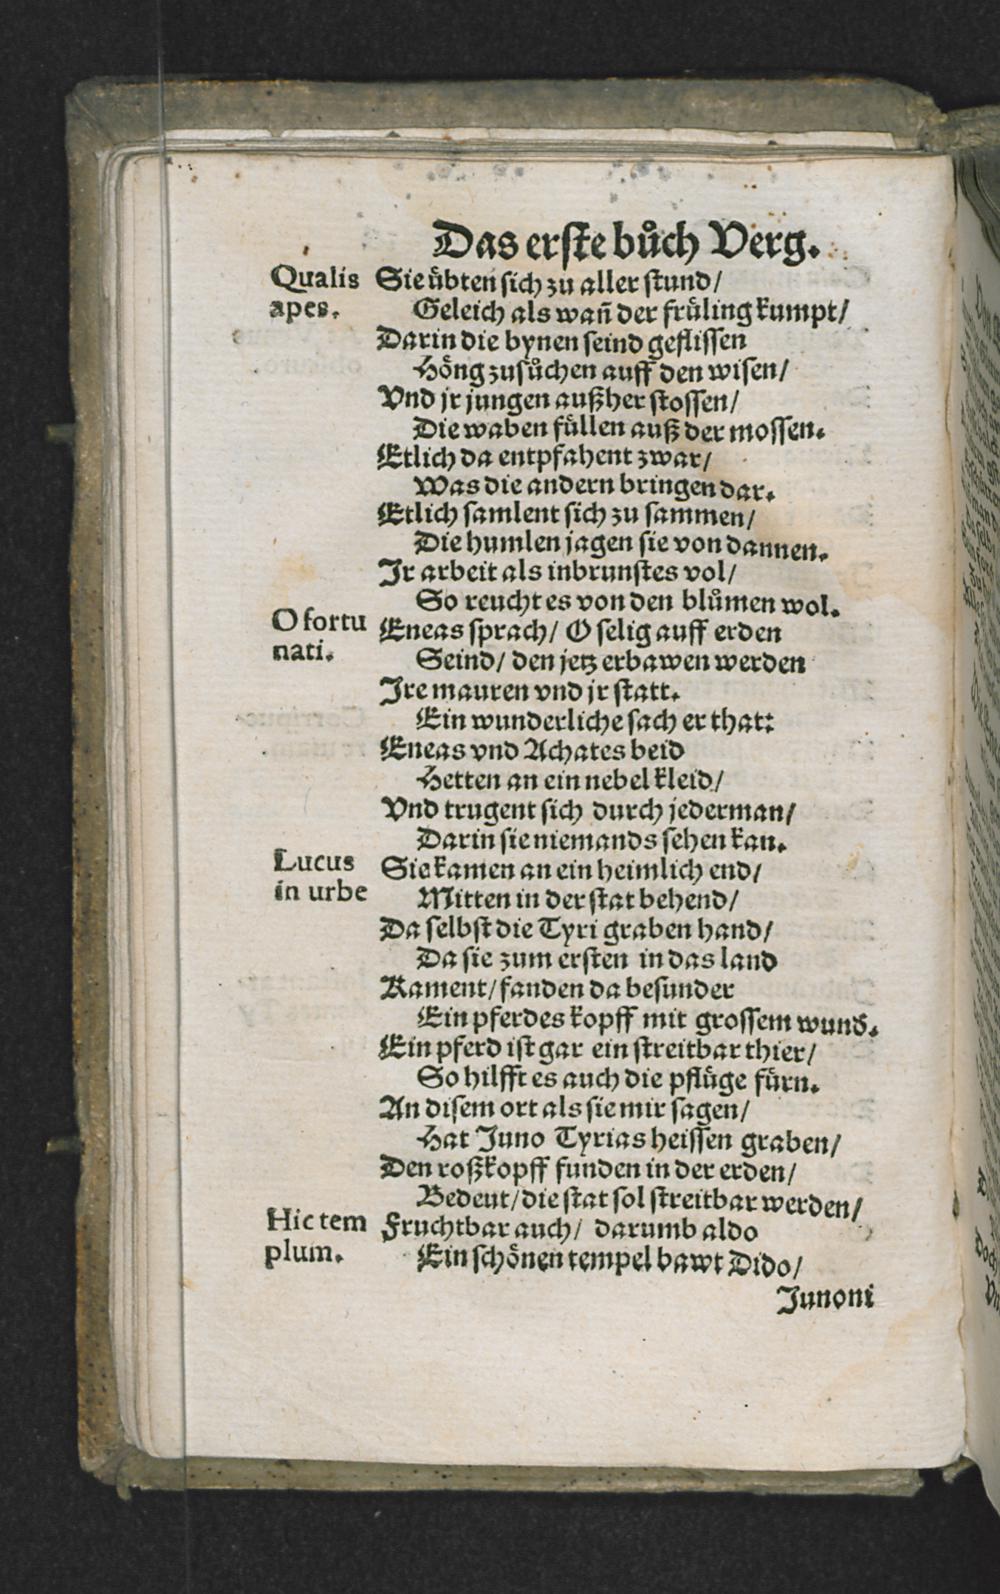 Das erste bůch Verg.
Qualis apes.
Sie übten sich zu aller stund/
Geleich als wañ der früling kumpt/
Darin die bynen seind geflissen
Höng zusůchen auff den wisen/
Vnd jr jungen außher stossen/
Die waben füllen auß der mossen.
Etlich da entpfahent zwar/
Was die andern bringen dar.
Etlich samlent sich zu sammen/
Die humlen jagen sie von dannen.
Jr arbeit als inbrunstes vol/
So reucht es von den blůmen wol.
O fortu
nati.
Eneas sprach/ O selig auff erden
Seind/ den jetz erbawen werden
Jre mauren vnd jr statt.
Ein wunderliche sach er that:
Eneas vnd Achates beid
Hetten an ein nebel kleid/
Vnd trugent sich durch jederman/
Darin sie niemands sehen kan.
Lucus
in urbe
Sie kamen an ein heimlich end/
Mitten in der stat behend/
Da selbst die Tyri graben hand/
Da sie zum ersten in das land
Kament/ fanden da besunder
Ein pferdes kopff mit grossem wund.
Ein pferd ist gar ein streitbar thier/
So hilfft es auch die pflüge fürn.
An disem ort als sie mir sagen/
Hat Juno Tyrias heissen graben/
Den roßkopff funden in der erden/
Bedeut/ die stat sol streitbar werden/
Hic tem
plum.
Fruchtbar auch/ darumb aldo
Ein schönen tempel bawt Dido/
Junoni